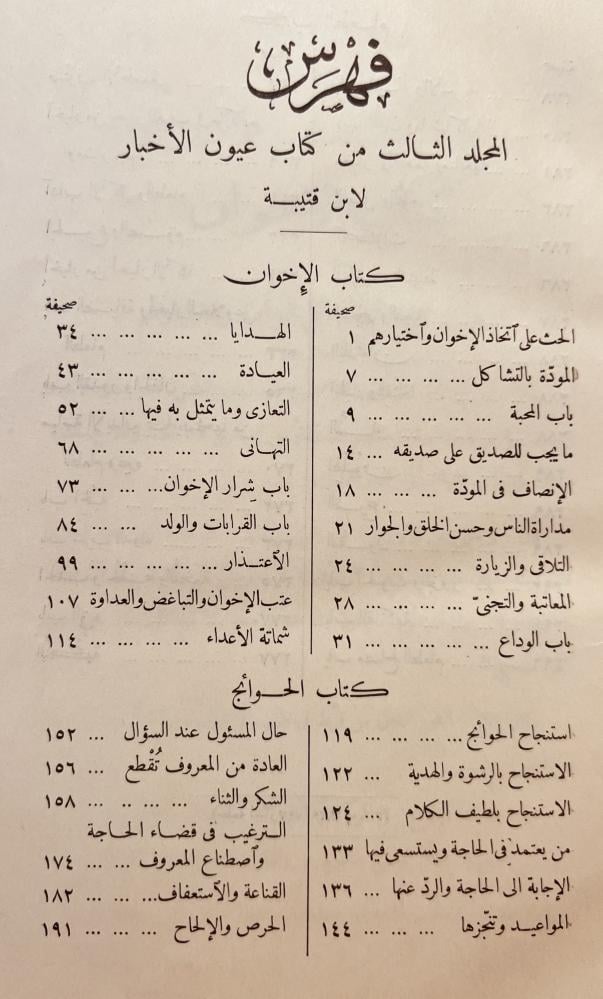 فهرس
المجلد الثالث من كتاب عيون الأخبار
لابن قتيبة
كتاب الإخوان
صحيفة
الحث على ٱتخاذ الإخوان وٱختيارهم ١
المودّة بالتشاكل ... ... ... ... ٧
باب المحبة ... ... ... ... ... ٩
ما يجب للصديق على صديقه ... ١٤
الإنصاف فى المودّة ... ... ... ١٨
مداراة الناس وحسن الخلق والجوار ٢١
التلاقى والزيارة ... ... ... ... ٢٤
المعاتبة والتجنىّ ... ... ... ... ٢٨
باب الوداع ... ... ... ... ... ٣١
صحيفة
الهدايا ... ... ... ... ... ٣٤
العيادة ... ... ... ... ... ٤٣
التعازى وما يتمثل به فيها ... ... ٥٢
التهانى ... ... ... ... ... ٦٨
باب شِرار الإخوان... ... ... ٧٣
باب القرابات والولد ... ... ... ٨٤
الٱعتذار ... ... ... ... ... ٩٩
عتب الإخوان والتباغض والعداوة ١٠٧
شماتة الأعداء ... ... ... ... ١١٤
كتاب الحوائج
استنجاح الحوائج ... ... ... ... ١١٩
الاستنجاح بالرشوة والهدية ... ١٢٢
الاستنجاح بلطيف الكلام ... ١٢٤
من يعتمد فى الحاجة ويستسعى فيها ١٣٣
الإجابة الى الحاجة والردّ عنها ... ١٣٦
المواعيد وتنجّزها ... ... ... ١٤٤
حال المسئول عند السؤال ... ١٥٢
العادة من المعروف تُقْطع ... ١٥٦
الشكر والثناء ... ... .. ... ١٥٨
الترغيب فى قضاء الحاجة
وٱصطناع المعروف ... ... ١٧٤
القناعة والٱستعفاف... ... ... ١٨٢
الحرص والإلحاح ... ... ... ١٩١